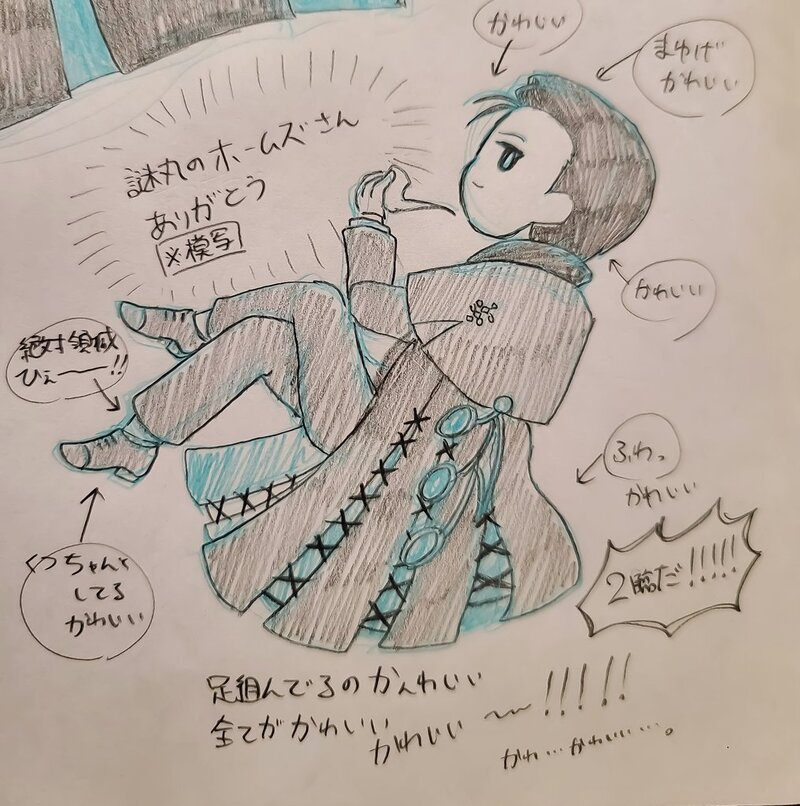 かわいい
まゆげ
かわいい
謎丸のホームズさん
ありがとう
※模写
かわいい
絶対領域
ひぇーー!!
ふわっ
かわいい
2臨だ!!!!!
くつちゃんと
してる
かわいい
足組んでるのかんわいい
全てがかわいい
かわいい〜〜!!!!!
かわ…かわいい…。